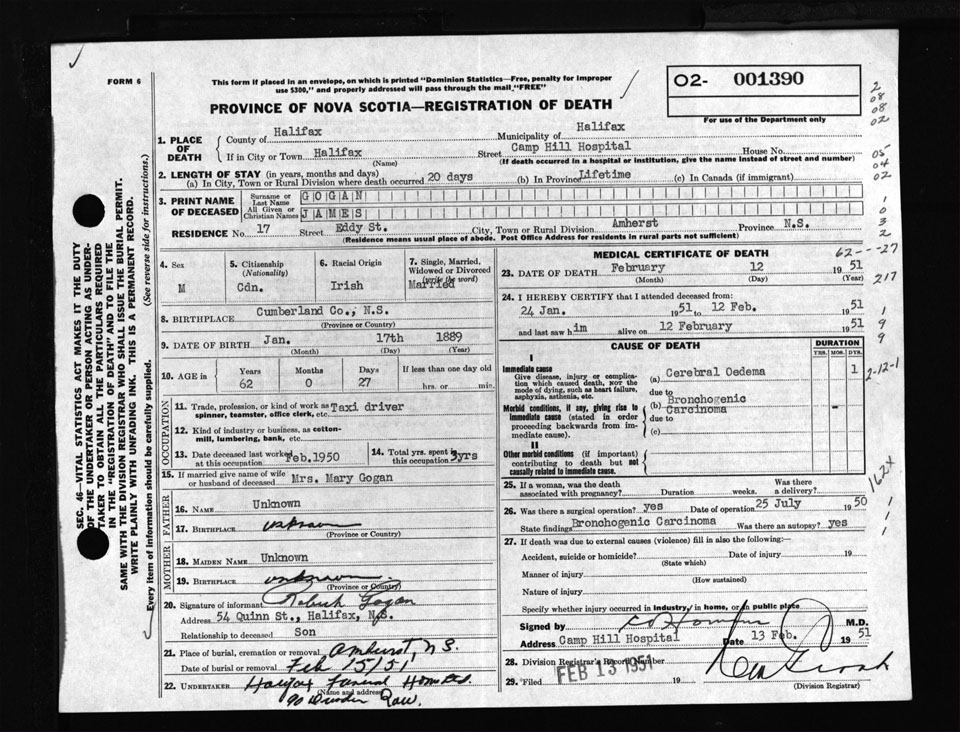 FORM 6
This form if placed in an envelope, on which is printed "Dominion Statistics—Free, penalty for improper
use $300," and properly addressed will pass through the mail "FREE"
PROVINCE OF NOVA SCOTIA—REGISTRATION OF DEATH
O2- 001390
For use of the Department only
1. PLACE OF DEATH
County of Halifax Municipality of Halifax
If in City or Town Halifax Street Camp Hill Hospital House No.
(Name) (If death occurred in a hospital or institution, give the name instead of street and number)
2. LENGTH OF STAY (in years, months and days)
(a) In City, Town or Rural Division where death occurred 20 days (b) In Province Lifetime (c) In Canada (if immigrant)
3. PRINT NAME OF DECEASED
Surname or Last Name GOGAN
All Given or Christian Names JAMES
RESIDENCE No. 17 Street Eddy St. City, Town or Rural Division Amherst Province N.S.
(Residence means usual place of abode. Post Office Address for residents in rural parts not sufficient)
4. Sex M
5. Citizenship (Nationality) Cdn.
6. Racial Origin Irish
7. Single, Married, Widowed or Divorced (write the word) Married
8. BIRTHPLACE Cumberland Co., N.S.
(Province or Country)
9. DATE OF BIRTH Jan. 17th 1889
(Month) (Day) (Year)
10. AGE in Years 62 Months 0 Days 27 If less than one day old hrs. or min.
OCCUPATION
11. Trade, profession, or kind of work as spinner, teamster, office clerk, etc. Taxi driver
12. Kind of industry or business, as cotton-mill, lumbering, bank, etc.
13. Date deceased last worked at this occupation Feb. 1950
14. Total yrs. spent in this occupation 3yrs
15. If married give name of wife or husband of deceased Mrs. Mary Gogan
FATHER
16. Name Unknown
17. Birthplace unknown
MOTHER
18. MAIDEN NAME Unknown
19. BIRTHPLACE unknown
(Province or Country)
20. Signature of informant Gogan
Address 54 Quinn St., Halifax, N.S.
Relationship to deceased Son
21. Place of burial, cremation or removal Amherst, N.S.
Date of burial or removal Feb 15/51
22. UNDERTAKER Halifax Funeral Home Ltd.
(Name and address)
90 Row.
MEDICAL CERTIFICATE OF DEATH
62---27
23. DATE OF DEATH February 12 1951
(Month) (Day) (Year)
24. I HEREBY CERTIFY that I attended deceased from:
24 Jan. 1951 to 12 Feb. 1951
and last saw him alive on 12 February 1951
CAUSE OF DEATH
DURATION
YRS. MOS. DYS.
I
Immediate cause
Give disease, injury or complication which caused death, NOT the mode of dying, such as heart failure, asphyxia, asthenia, etc.
(a) Cerebral Oedema 1
due to
Morbid conditions, if any, giving rise to immediate cause (stated in order proceeding backwards from immediate cause).
(b) Bronchogenic Carcinoma -
due to
(c)
II
Other morbid conditions (if important) contributing to death but not causally related to immediate cause.
25. If a woman, was the death associated with pregnancy? Duration weeks. Was there a delivery?
26. Was there surgical operation? yes Date of operation 25 July 1950
State findings Bronchogenic Carcinoma Was there an autopsy? yes
27. If death was due to external causes (violence) fill in also the following:
Accident, suicide or homicide? Date of injury 19
(State which)
Manner of injury
(How sustained)
Nature of injury
Specify whether injury occurred in industry, in home, or in public place
Signed by M.D.
Address Camp Hill Hospital Date 13 Feb. 1951
28. Division Registrar's Record Number
29. Filed FEB 13 1951 19
(Division Registrar)
SEC. 46—VITAL STATISTICS ACT MAKES IT THE DUTY
OF THE UNDERTAKER OR PERSON ACTING AS UNDER-
TAKER TO OBTAIN ALL THE PARTICULARS REQUIRED
IN THE "REGISTRATION OF DEATH" AND TO FILE THE
SAME WITH THE DIVISION REGISTRAR WHO SHALL ISSUE THE BURIAL PERMIT.
WRITE PLAINLY WITH UNFADING INK. THIS IS A PERMANENT RECORD.
Every item of information should be carefully supplied. (See reverse side for instructions.)
2
08
08
02
05
04
02
1
0
3
2
217
1
9
9
2-12-1
162+
1
1
1